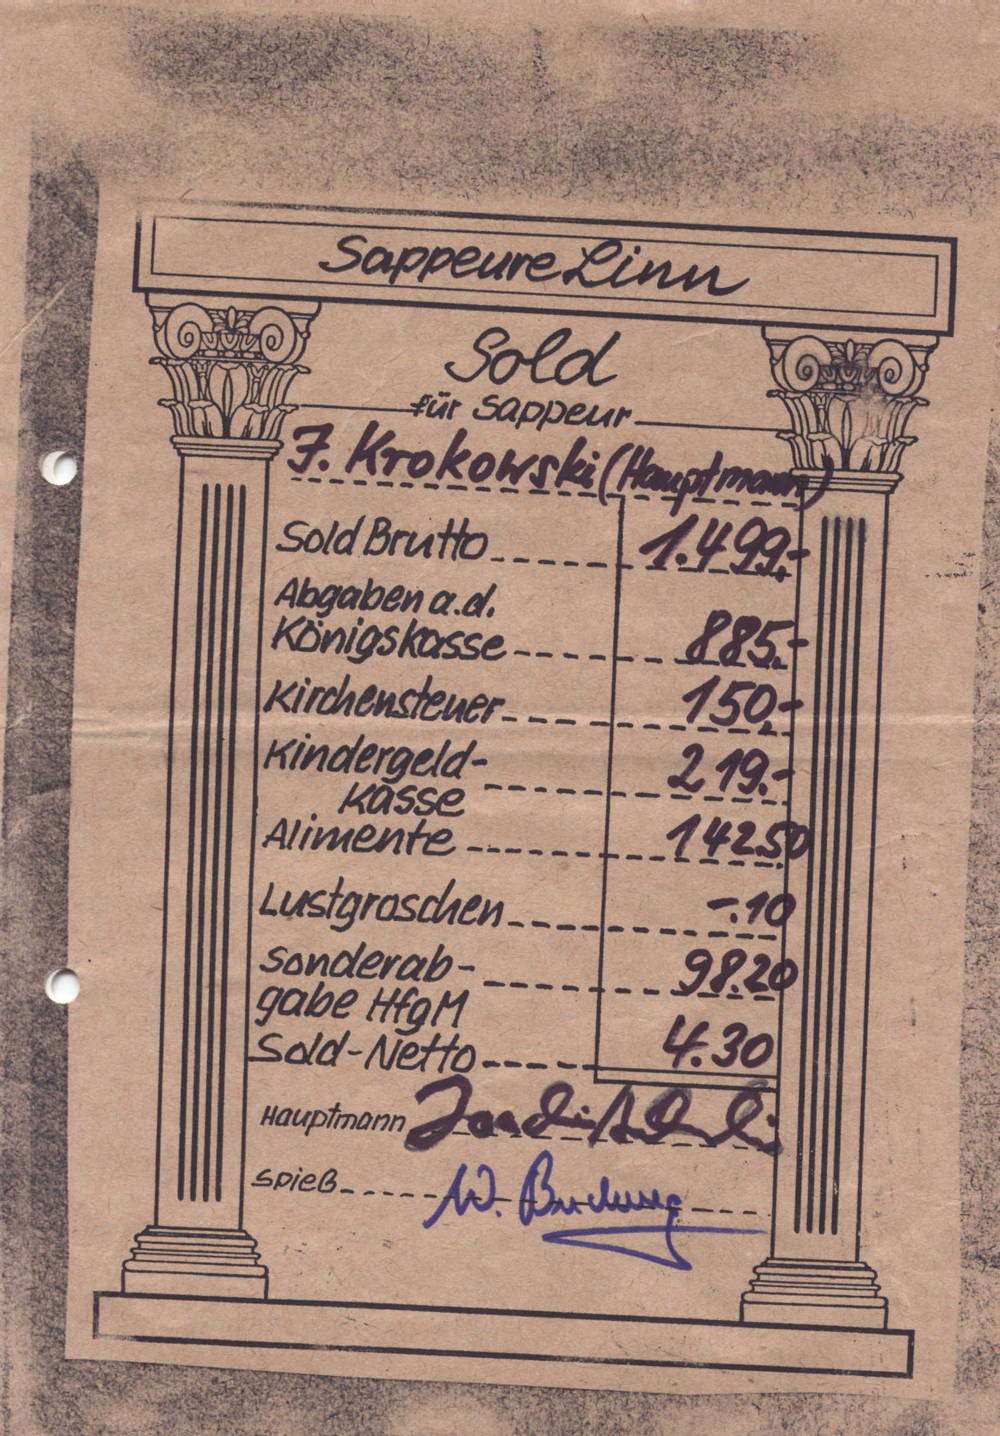 Sappeure Linn
Sold
für Sappeur
J. Krokowski (Hauptmann)
Sold Brutto 1.499.-
Abgaben a.d.
Königskasse 885.-
Kirchensteuer 150.-
Kindergeld- 219.-
kasse
Alimente 142.50
Lustgroschen -.10
Sonderab- 98.20
gabe HfgM
Sold-Netto 4.30
Hauptmann
Spieß W.